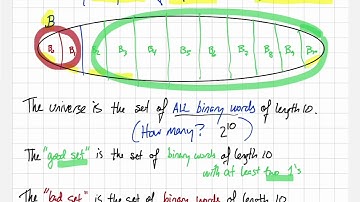 B
B₀ B₁ B₂ B₃ B₄ B₅ B₆ B₇ B₈ B₉ B₁₀
The universe is the set of ALL binary words of length 10.
(How many? 2¹⁰)
The "good set" is the set of binary words of length 10
with at least two 1's
The "bad set" is the set of binary words of length 10